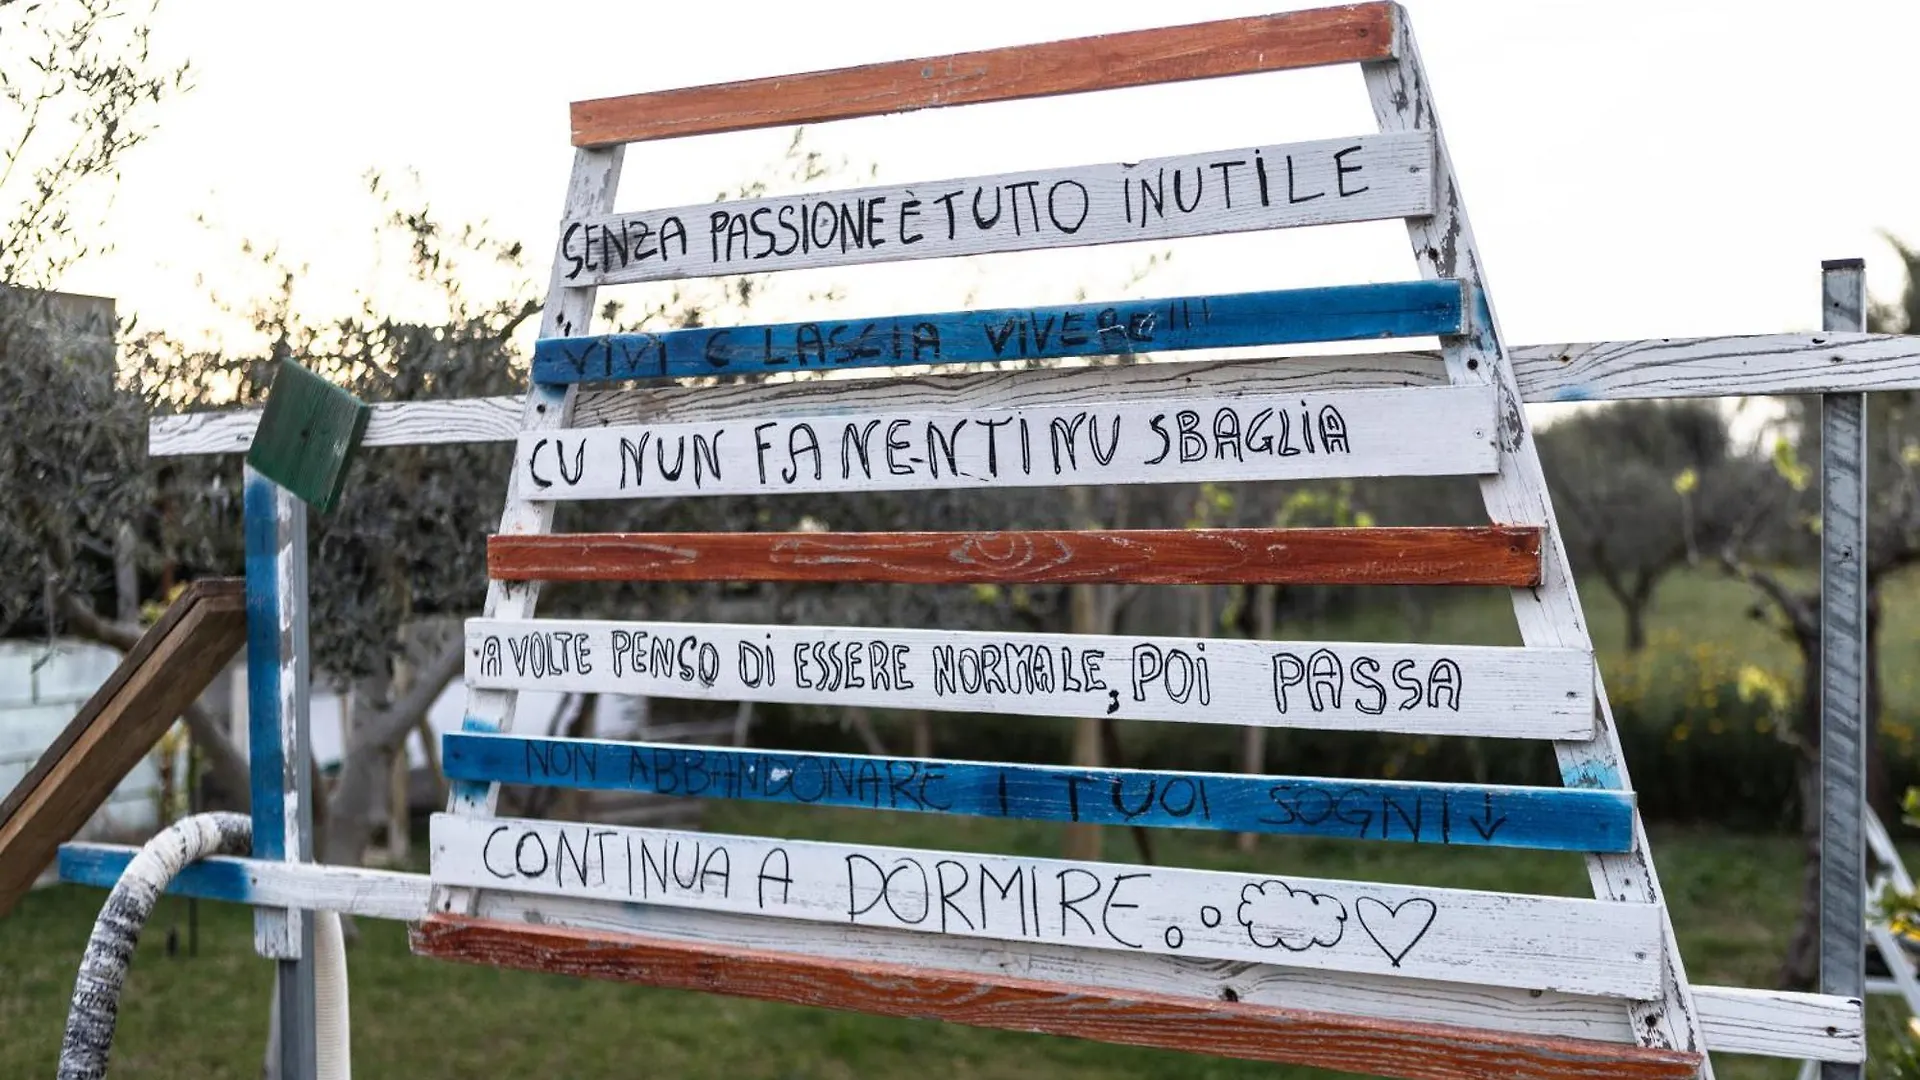 SENZA PASSIONE È TUTTO INUTILE
VIVI E LASCIA VIVERE!!!
CU NUN FA NENTI NU SBAGLIA
A VOLTE PENSO DI ESSERE NORMALE, POI PASSA
NON ABBANDONARE I TUOI SOGNI↓
CONTINUA A DORMIRE.